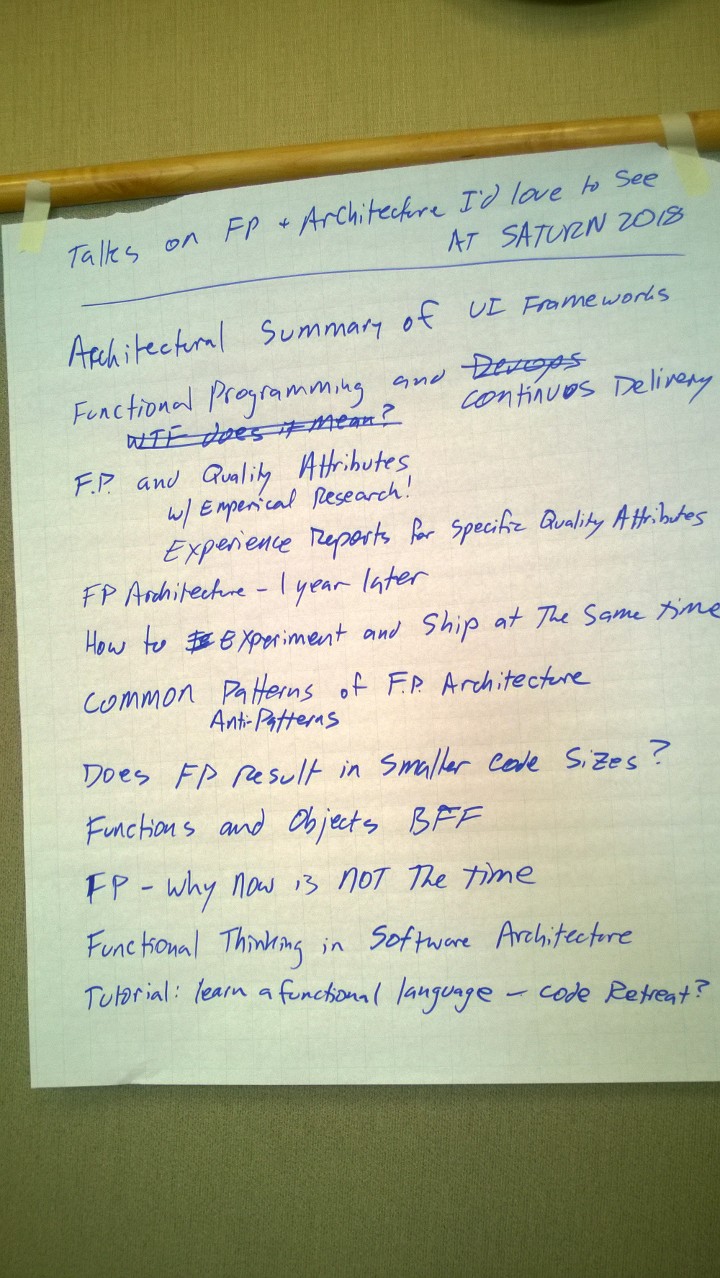 Talks on FP + Architecture I'd love to See
AT SATURN 2018
Architectural Summary of UI Frameworks
Functional Programming and Devops
Continuos Delivery
WTF does it mean?
F.P. and Quality Attributes
w/ Emperical Research!
Experience Reports for Specific Quality Attributes
FP Architecture - 1 year later
How to Experiment and Ship at The Same time
Common Patterns of F.P. Architecture
Anti-Patterns
Does FP Result in Smaller Code Sizes?
Functions and Objects BFF
FP - Why Now is NOT The time
Functional Thinking in Software Architecture
Tutorial: learn a functional language - Code Retreat?